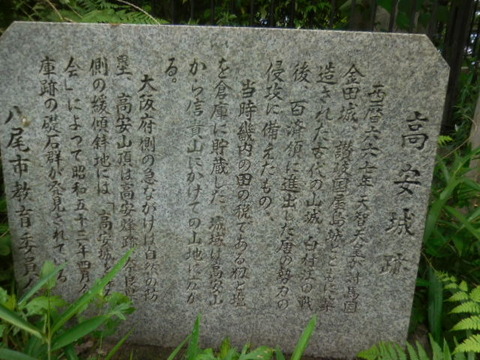 高安城跡
西暦六六七年、天智天皇が対馬国
金田城、讃岐国屋島城とともに築
造された古代の山城。白村江の戦
後、百済領に進出した唐の勢力の
侵攻に備えたもの。
当時畿内の田の税である籾と塩
を倉庫に貯蔵した。城域は高安山
から信貴山にかけての山地にわた
る。
大阪府側の急ながけは自然の防
塁、高安山頂は高安烽跡、奈良県
側の緩傾斜地には、「高安城を
会」によって昭和五十三年四月
庫跡の礎石群が発見されている
八尾市教育委員